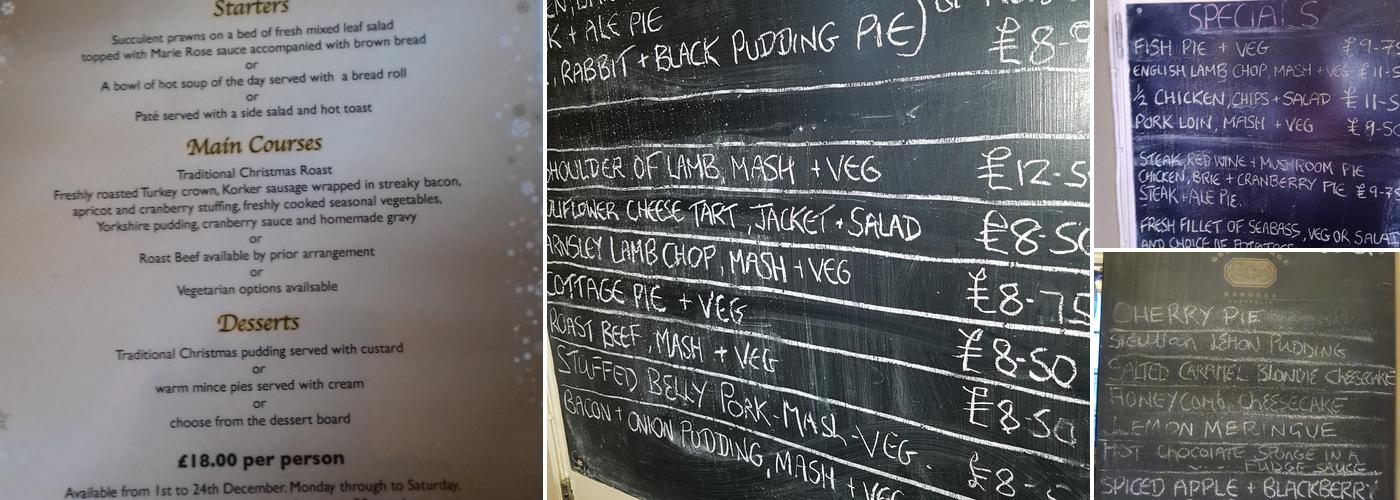 Starters
Succulent prawns on a bed of fresh mixed leaf salad
topped with Marie Rose sauce accompanied with brown bread
or
A bowl of hot soup of the day served with a bread roll
or
Patè served with a side salad and hot toast
Main Courses
Traditional Christmas Roast
Freshly roasted Turkey crown, Korker sausage wrapped in streaky bacon,
apricot and cranberry stuffing, freshly cooked seasonal vegetables,
Yorkshire pudding, cranberry sauce and homemade gravy
or
Roast Beef available by prior arrangement
or
Vegetarian options availsable
Desserts
Traditional Christmas pudding served with custard
or
warm mince pies served with cream
or
choose from the dessert board
£18.00 per person
Available from 1st to 24th December. Monday through to Saturday.
K + ALE PIE
RABBIT + BLACK PUDDING PIE) £8-9
HOULDER OF LAMB, MASH + VEG £12-5
ULIFLOWER CHEESE TART, JACKET + SALAD £8-50
ARNSLEY LAMB CHOP, MASH + VEG £8-75
COTTAGE PIE + VEG £8-50
ROAST BEEF, MASH + VEG £8-50
STUFFED BELLY PORK-MASH-VEG. £8-
BACON + ONION PUDDING, MASH + VEG
SPECIALS
FISH PIE + VEG £9-7
ENGLISH LAMB CHOP, MASH + VEG £11-5
½ CHICKEN, CHIPS + SALAD £11-5
PORK LOIN, MASH + VEG £9-5
STEAK, RED WINE + MUSHROOM PIE
CHICKEN, BRIE + CRANBERRY PIE £9-7
STEAK + ALE PIE.
FRESH FILLET OF SEABASS, VEG OR SALAD
AND CHOICE OF POTATOES
CHERRY PIE
LEMON PUDDING
SALTED CARAMEL BLONDIE CHEESECAKE
HONEYCOMB CHEESECAKE
LEMON MERINGUE
HOT CHOCOLATE SPONGE IN A
FUDGE SAUCE
SPICED APPLE + BLACKBERRY